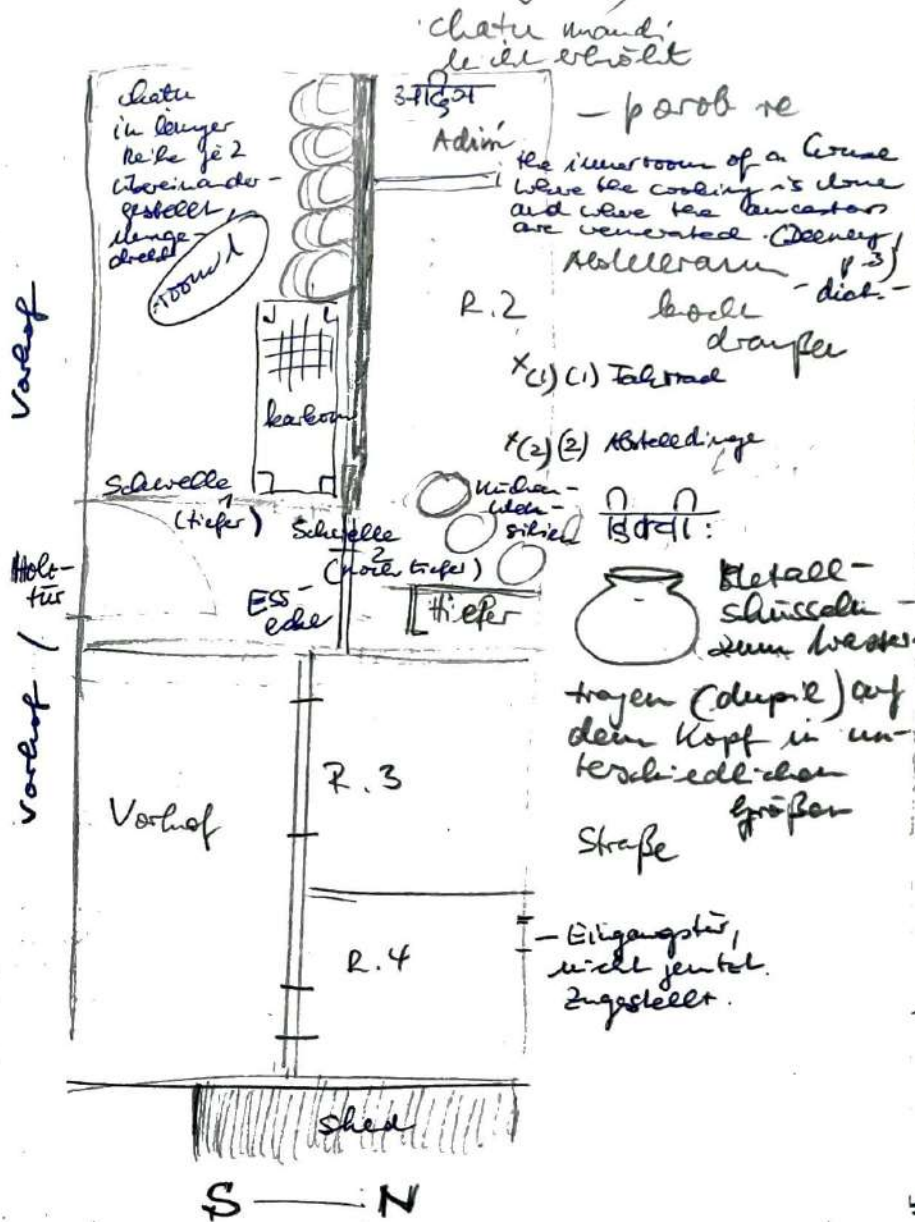 chatu mandi
leicht erhöht
chatu
in langer
Reihe je 2
übereinander-
gestellt,
umge-
dreht
room 1
Adiń
- parob re
the inner room of a house
where the cooking is done
and where the ancestors
are venerated. (Deeney,
p 3)
- dict. -
Abstellraum
hoch
draußen
R.2
x(1) (1) Fahrrad
x(2) (2) Abstelldinge
Vorhof
Schwelle
1
(tiefer)
Schwelle
2
(noch tiefer)
Küchen-
uten-
silien
Holz-
tür
Ess-
ecke
tiefer
Metall-
schüsseln
zum Wasser-
tragen (dupil) auf
dem Kopf in un-
terschiedlichen
Größen
Straße
Vorhof /
Vorhof
R.3
R.4
- Eingangstür,
nicht
Zugestellt.
shed
S — N